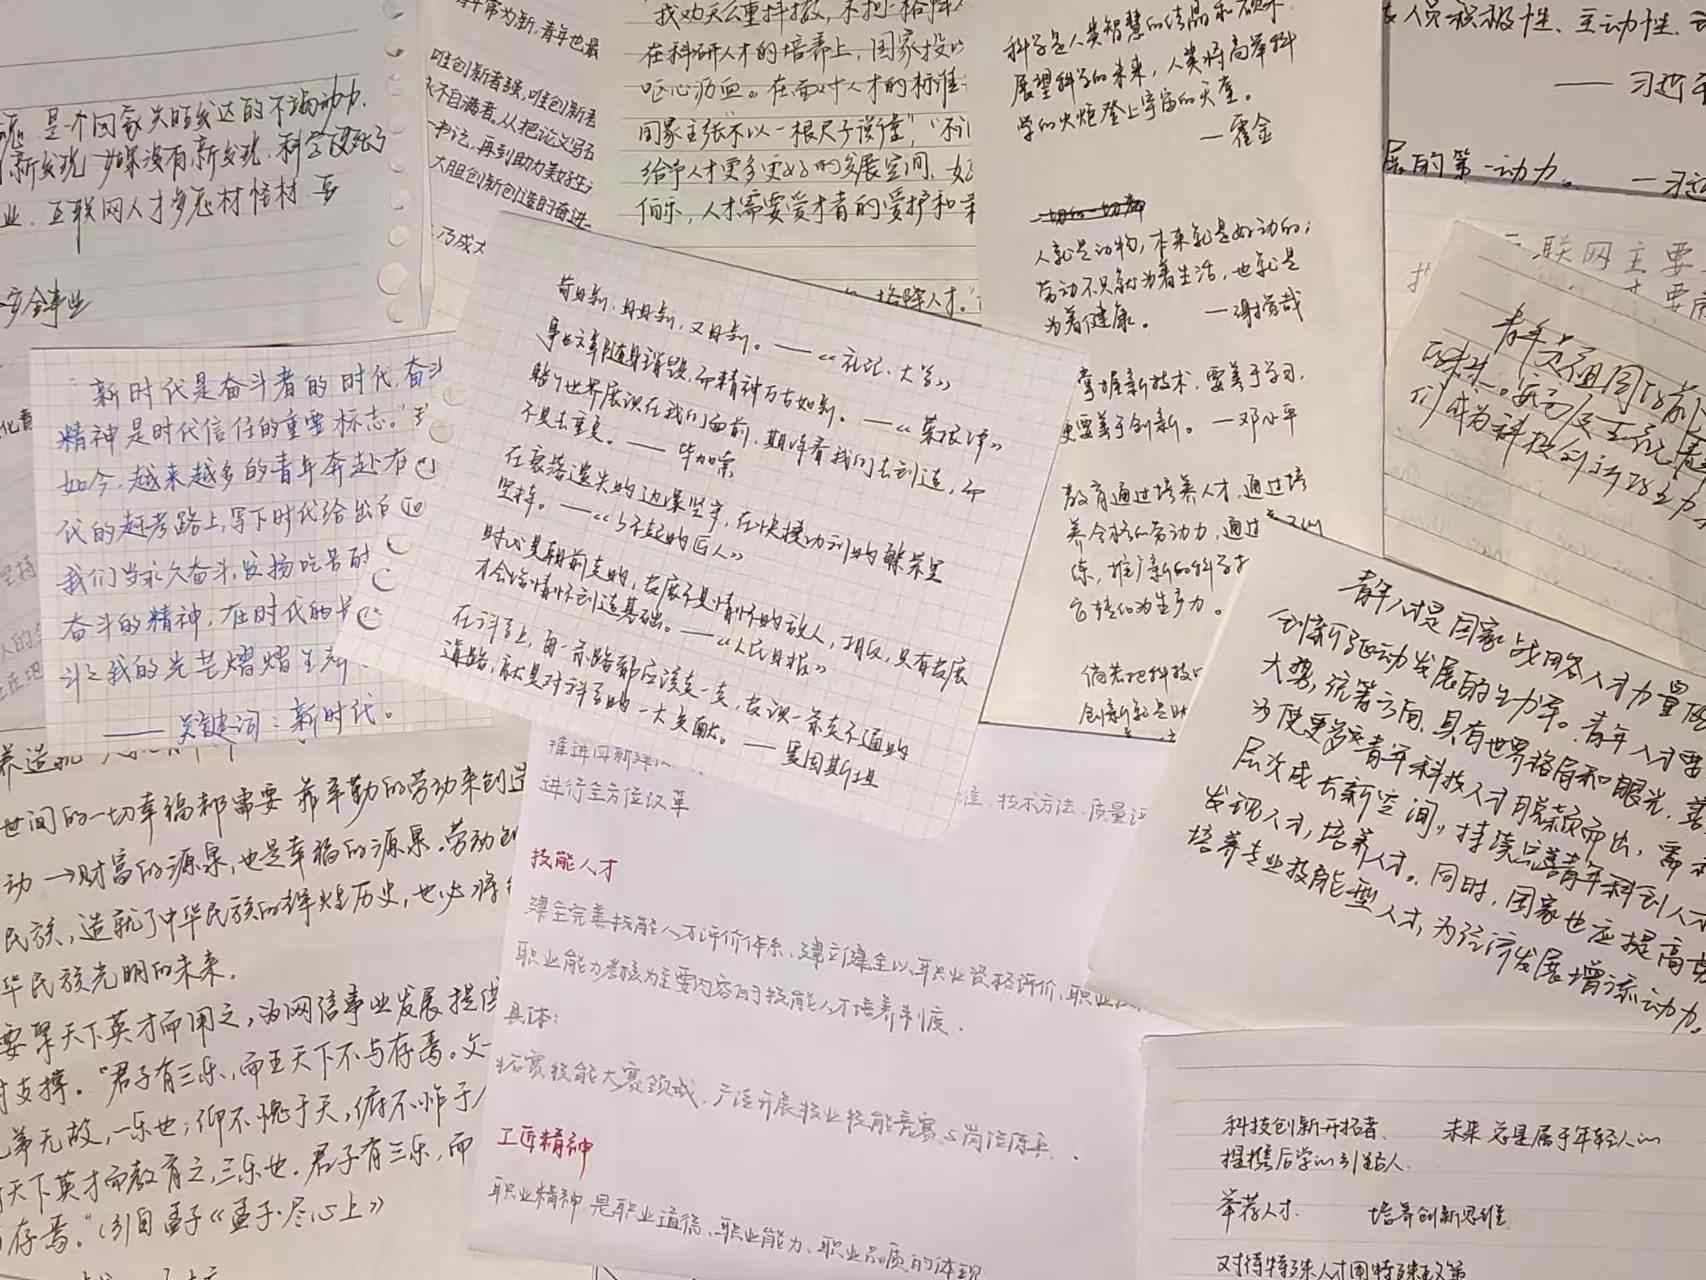 是个国家兴旺发达的不竭动力.
新发现 如果没有新发现,科学便死了
业. 互联网人才多怪材怪材.
安全事业
年常为新,青年也最
唯创新者强,唯创新者
不自满者,从把论文写在
书记,再到助力美好生
大胆创新创造的奋进
乃成大
“我劝天公重抖擞,不拘一格降人
在科研人才的培养上,国家投以
呕心沥血。在面对人才的标准
国家主张“不以一根尺子谈量”,“不
给予人才更多更好的发展空间,
伯乐,人才需要爱才者的爱护和
格降人才。”
科学是人类智慧的结晶和硕果.
展望科学的未来,人类将高举科
学的火炬登上宇宙的天堂。
—霍金
人就是动物,本来就是好动的;
劳动不只就为着生活,也就是
为着健康。 —谢觉哉
掌握新技术,要善于学习,
更要善于创新。 —邓小平
教育通过培养人才,通过培
养合格的劳动力,通过
练,推广新的科学技
它转化为生产力。
倘若把科技
创新就是助
人员积极性、主动性、
——习近平
展的第一动力。 —习近
联网主要
才要
青年是祖国的前
的味来。
们成为科技创新的主力
新时代是奋斗者的时代,奋斗
精神是时代信任的重要标志。
如今,越来越多的青年奔赴在
代的赶考路上,写下时代给出的
我们当永久奋斗,发扬吃苦耐
奋斗的精神,在时代的
斗之我的光芒熠熠生辉
——关键词:新时代。
苟日新,日日新,又日新。——《礼记·大学》
事业文章随身销毁,而精神万古如新。——《菜根谭》
整个世界展现在我们面前,期待着我们去创造,而
不是去重复。——毕加索
在衰落遗失的边缘坚守,在快捷功利的繁荣里
坚持。——《了不起的匠人》
时代是朝前走的,发展不是情怀的敌人,相反,只有发展
才会给情怀创造基础。——《人民日报》
在科学上,每一条路都应该走一走,发现一条走不通的
道路,就是对科学的一大贡献。——爱因斯坦
青年人才是国家战略人才力量的
创新驱动发展的生力军。青年人才要
大势,统筹方向,具有世界格局和眼光,善
为使更多青年科技人才脱颖而出,需
层次成长新空间,持续完善青年科创人才
发现人才,培养人才。同时,国家也应提高
培养专业技能型人才,为经济发展增添动力。
养造就
世间的一切幸福都需要 靠辛勤的劳动来创造
动→财富的源泉,也是幸福的源泉。劳动创
民族,造就了中华民族的辉煌历史,也必将
华民族光明的未来.
要聚天下英才而用之,为网信事业发展提供
才支撑。“君子有三乐,而王天下不与存焉。父
兄弟无故,一乐也;仰不愧于天,俯不怍于
天下英才而教育之,三乐也。君子有三乐,而
存焉。”(引自孟子《孟子·尽心上》
推进四新
进行全方位改革
准、技术方法、质量
技能人才
建全完善技能人才评价体系、建立健全以职业资格评价、职业
职业能力考核为主要内容的技能人才培养制度.
具体:
拓宽技能大赛领域、广泛开展技业技能竞赛与岗位练兵.
工匠精神
职业精神是职业道德、职业能力、职业品质的体现
科技创新开拓者、 未来总是属于年轻人的
提携后学的引路人.
举荐人才. 培养创新思维
对待特殊人才用特殊政策